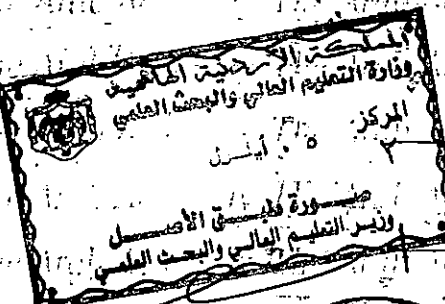 المملكة الأردنية الهاشمية
وزارة التعليم العالي والبحث العلمي
المركز
٠٥ أيلول
٢
صورة طبق الأصل
وزير التعليم العالي والبحث العلمي